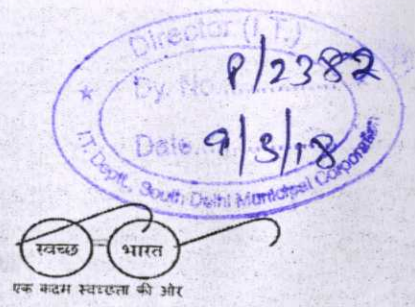 Director (I.T.)
Dy. No. P/2382
Date. 9/3/18
I.T. Deptt., South Delhi Municipal Corporation
स्वच्छ भारत
एक कदम स्वच्छता की ओर